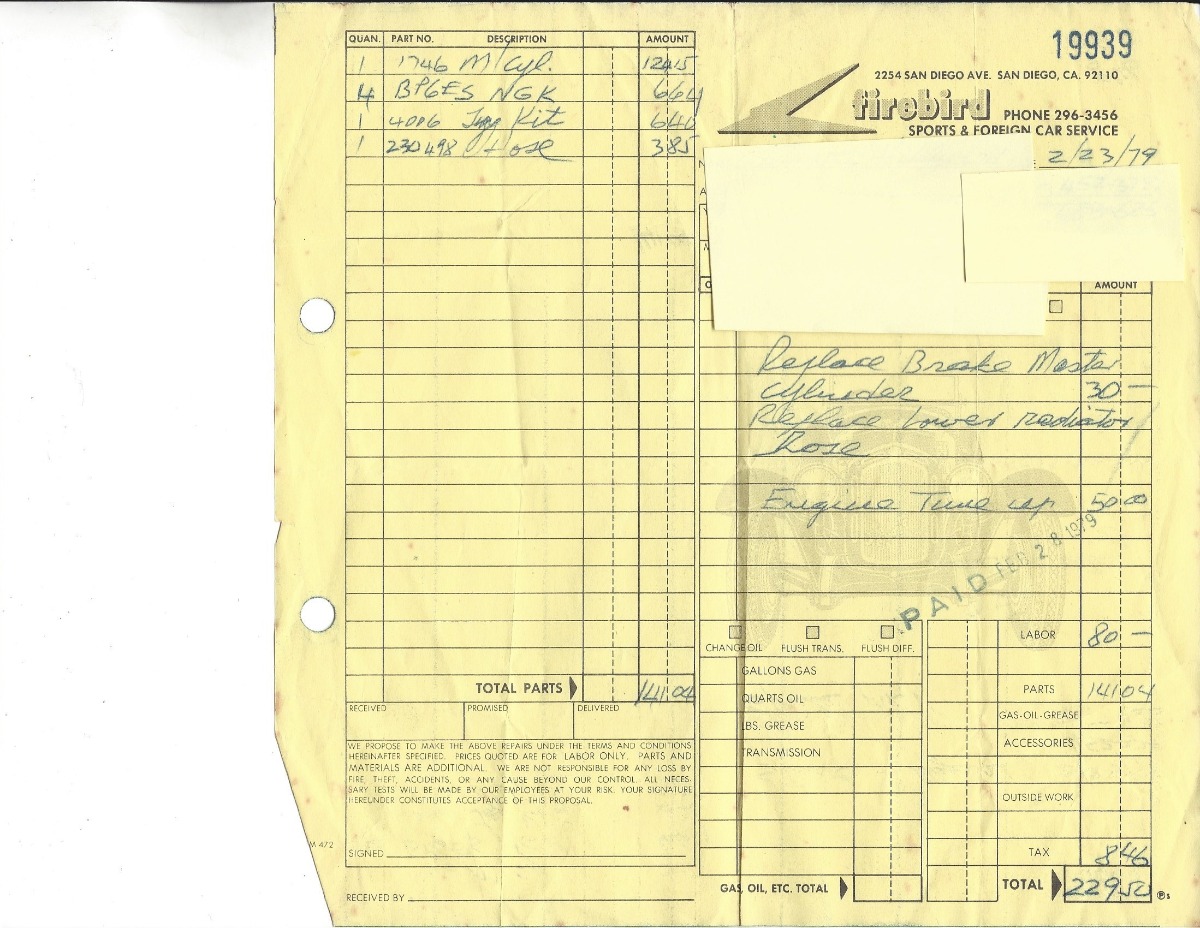 QUAN. PART NO. DESCRIPTION AMOUNT
1 1746 M/Cyl. 124 15
4 BP6ES NGK 6 64
1 4006 Kit 6 40
1 230498 Hose 3 85
TOTAL PARTS 141.04
RECEIVED PROMISED DELIVERED
WE PROPOSE TO MAKE THE ABOVE REPAIRS UNDER THE TERMS AND CONDITIONS
HEREINAFTER SPECIFIED. PRICES QUOTED ARE FOR LABOR ONLY. PARTS AND
MATERIALS ARE ADDITIONAL. WE ARE NOT RESPONSIBLE FOR ANY LOSS BY
FIRE, THEFT, ACCIDENTS, OR ANY CAUSE BEYOND OUR CONTROL. ALL NECES-
SARY TESTS WILL BE MADE BY OUR EMPLOYEES AT YOUR RISK. YOUR SIGNATURE
HEREUNDER CONSTITUTES ACCEPTANCE OF THIS PROPOSAL.
M 472
SIGNED
RECEIVED BY
19939
2254 SAN DIEGO AVE. SAN DIEGO, CA. 92110
firebird
PHONE 296-3456
SPORTS & FOREIGN CAR SERVICE
2/23/79
AMOUNT
Replace Brake Master
Cylinder 30 —
Replace Lower radiator
Hose
Engine Tune up 50 00
PAID FEB 28 1979
CHANGE OIL FLUSH TRANS. FLUSH DIFF.
GALLONS GAS
QUARTS OIL
LBS. GREASE
TRANSMISSION
GAS, OIL, ETC. TOTAL
LABOR 80 —
PARTS 141 04
GAS-OIL-GREASE
ACCESSORIES
OUTSIDE WORK
TAX 8 46
TOTAL 229 50